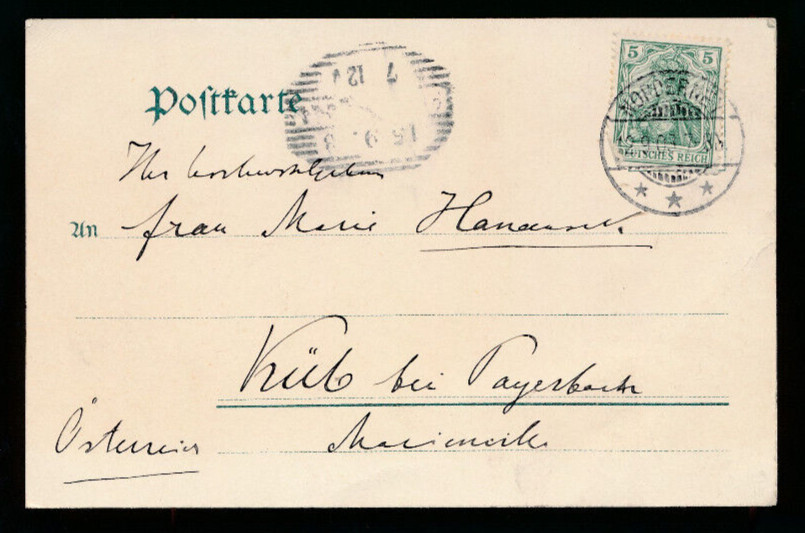 5 5
DEUTSCHES REICH
NORDERNEY
Postkarte
7 12
15.9.
Ihr hochwohlgeboren
An Frau Marie
Küb bei Payerbach
Österreich